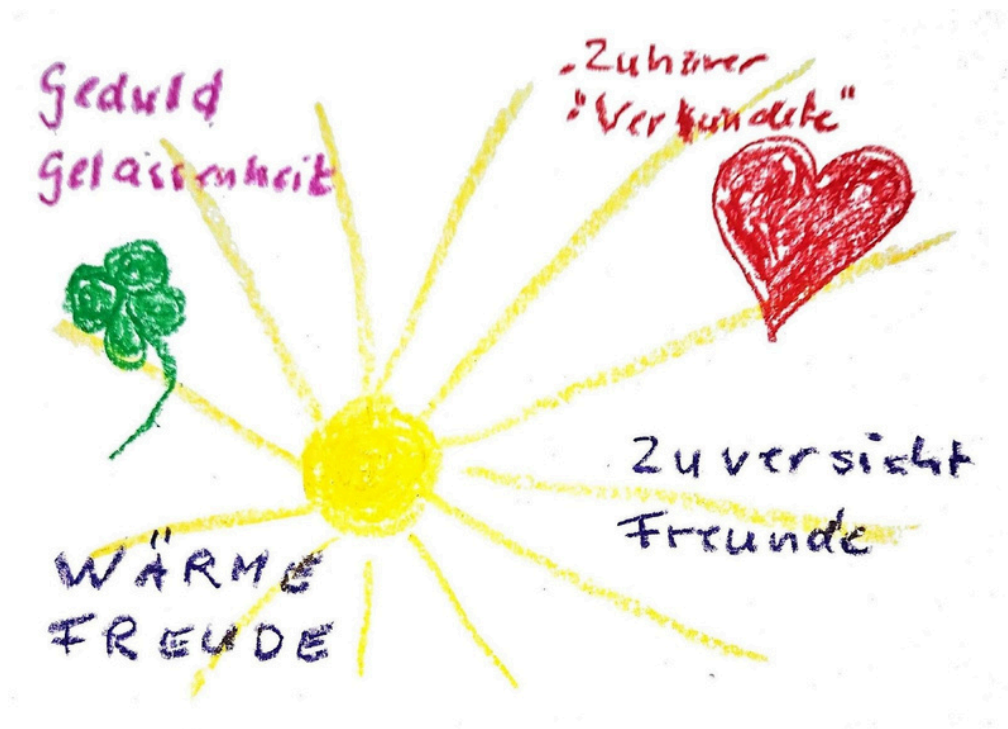 Geduld
Gelassenheit
"Verbündete"
Zuversicht
Freunde
WÄRME
FREUDE